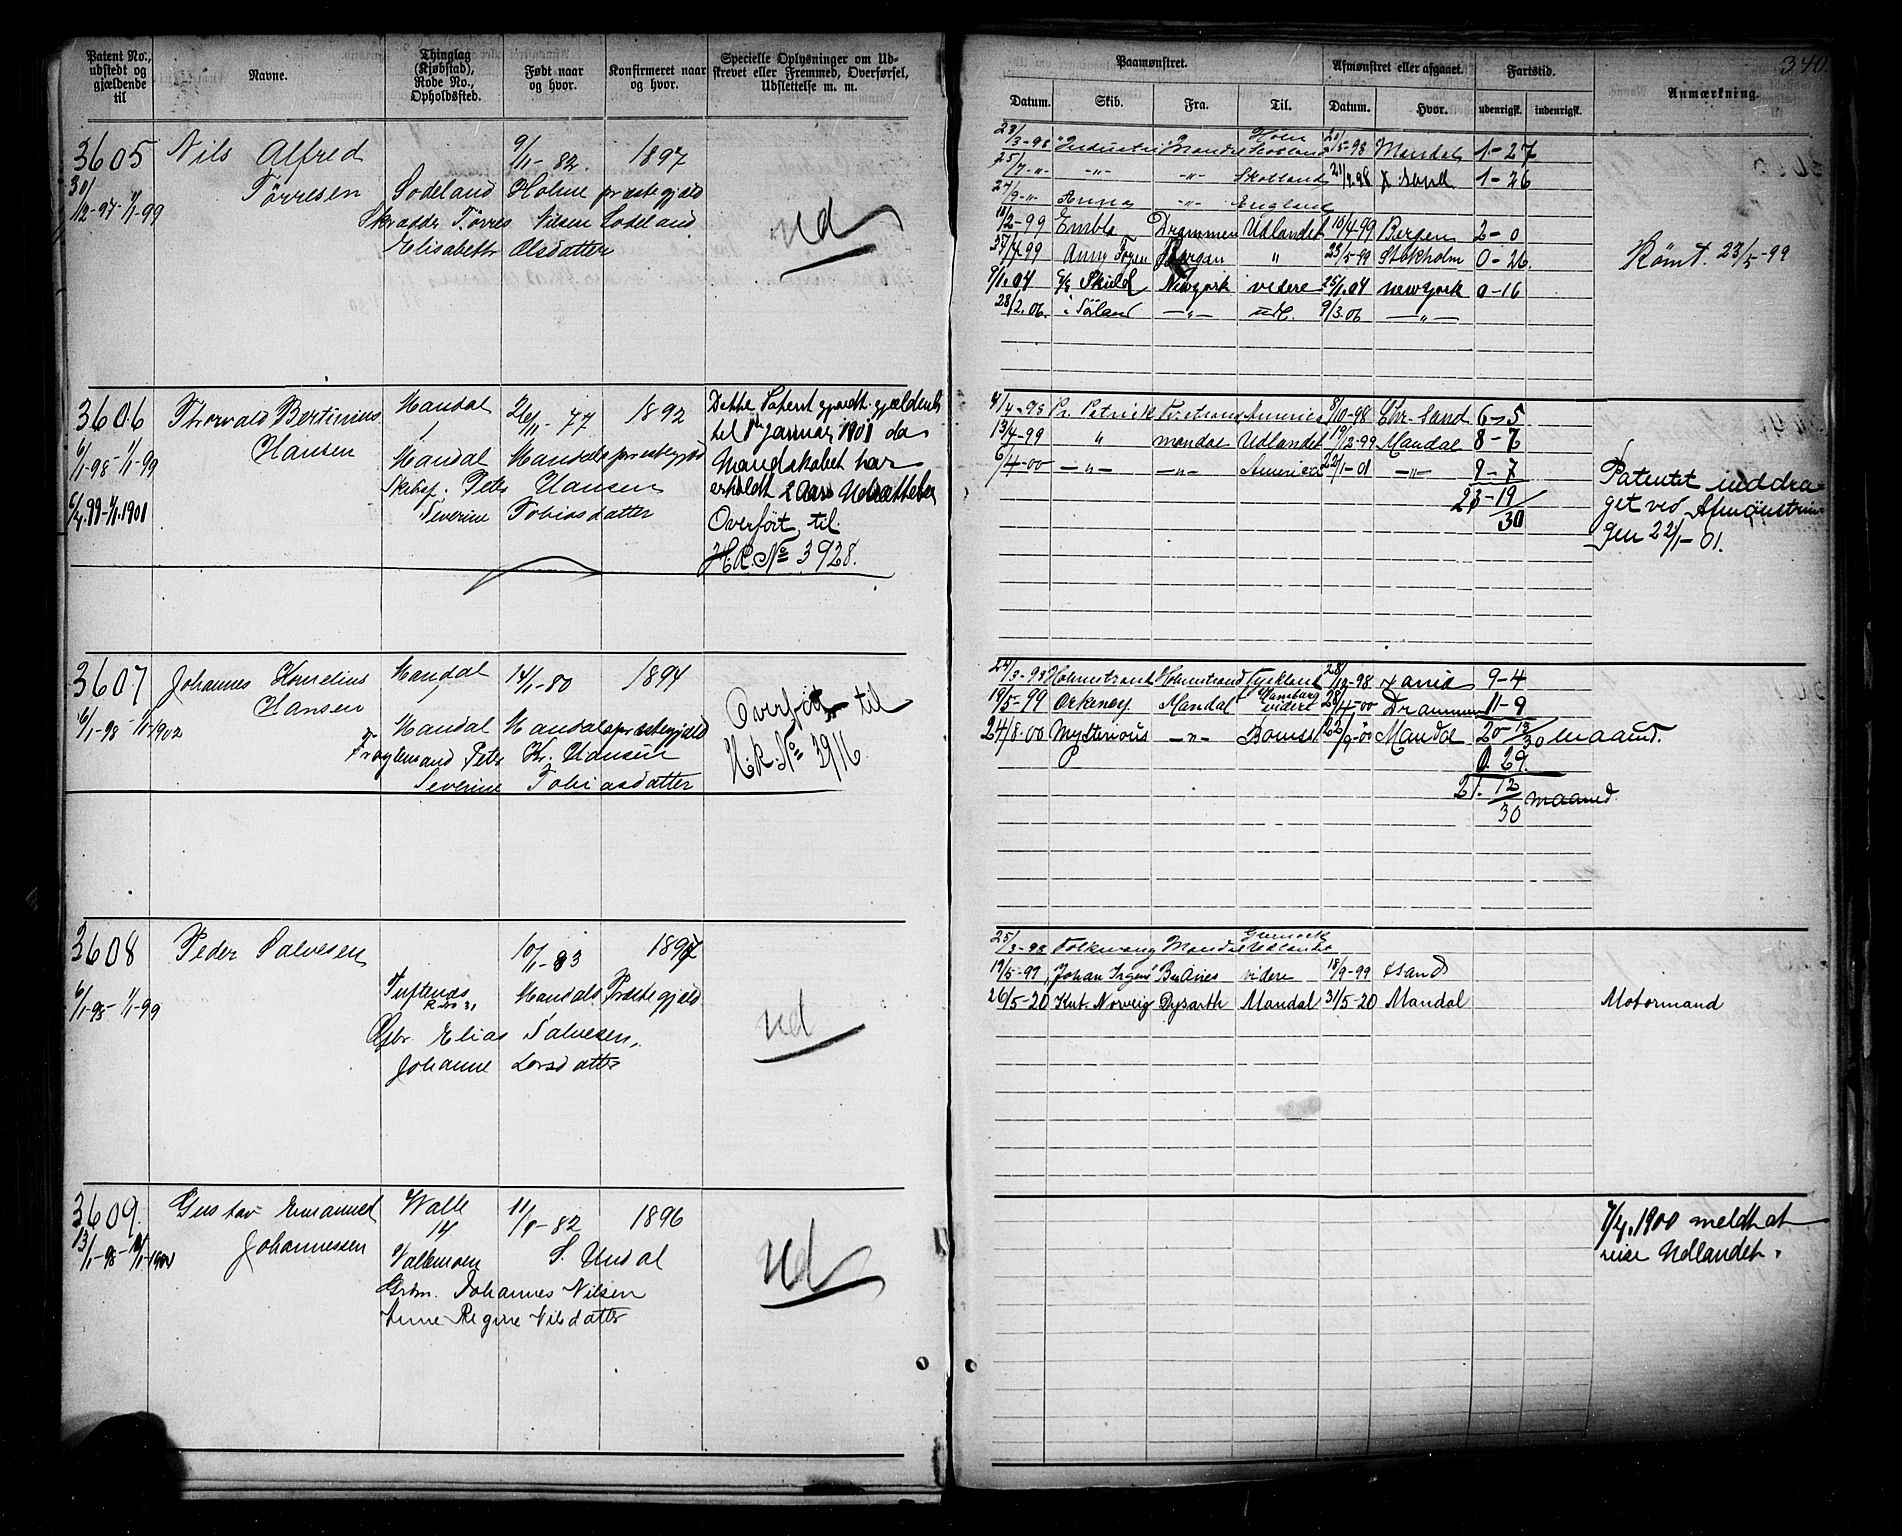 340.
Patent No., udstedt og gjældende til
Navne.
Thinglag (Kjøbstad), Rode No., Opholdssted.
Født naar og hvor.
Konfirmeret naar og hvor.
Specielle Oplysninger om Udskrevet eller Fremmed, Overførsel, Udslettelse m. m.
Paamønstret.
Afmønstret eller afgaaet.
Fartstid.
Anmærkning.
Datum. Skib. Fra. Til. Datum. Hvor. udenrigsk. indenrigsk.
3605 Nils Alfred 9/11-82. 1897
30/12-97-1/1-99 Tørresen Sodeland Holme præstegjeld
Skrædder Tørres Nilsen Sodeland
Elisabeth Olsdatter
ud
23/3-98 Industri Mandal Skotland 20/5-98 Mandal 1-27
25/7-"- -"- -"- Skotland 21/9.98 X Sand 1-26
27/9-"- Anna -"- England
10/2-99 Embla Drammen Udlandet 10/4-99 Bergen 2-0
Bergen " 23/5-99 Stokholm 0-26.
9/1.04 Skield Newyork videre 25/1.04 newyork 0-16
28/2.06. Sørland -"- udl. 9/3.06 -"-
Rømt. 23/5-99
3606 Thorvald Bertinius Mandal 26/11-77 1892
6/1-98-1/1-99 Hansen Mandal Mandals præstegjeld
Peter Hansen
6/4.99-1/1.1901 Severine Tobiasdatter
Dette Patent gjordt gjældende
til 1ste Januar 1901 da
Mandskabet har
erholdt 2 Aars Udsættelse
Overført til
H.R. No 3928.
4/4-98 Pr. Petrick America 8/10-98 Chr. Sand 6-5
13/4-99 " mandal Udlandet 19/12-99 Mandal 8-7
6/4-00 -"- -"- America 22/1-01 -"- 9-7
23-19/30
Patentet inddra-
get ved Afmønstrin
gen 22/1-01.
3607 Johannes Kornelius Mandal 14/1-80 1894
6/1-98 1/1 1902 Hansen Mandal Mandals præstegjeld
Peter Kr. Hansen
Severine Tobiasdatter
Overført til
H.R. No 3916.
24/3-98 Holmestrand Holmestrand Tyskland 28/12-98 9-4
19/5-99 Orkenøy Mandal Hamburg videre 28/4-00 Drammen 11-9
24/8.00 Mysterious -"- 22/9-00 Mandal 20 13/30 maaned.
0. 29.
21. 12/30 maaned.
3608 Peder Salvesen 10/1-83 1897
6/1-98-1/1-99 Tuftenæs Mandals Præstegjeld
Gbr. Elias Salvesen,
Johanne Larsdatter
ud
25/3-98 Folkvang Mandal Udlandet
19/5-99 "Johan Irgens" videre 18/9-99 xsand
26/5-20 Kut. Norveig Dysarth Mandal 31/5-20 Mandal Motormand
3609. Gustav Emanuel Walle 11/8-82 1896
Johannessen 14
Vallemoen S. Undal
Grdm. Johannes Nilsen
Anne Regine Nilsdatter
ud
7/4.1900 meldt at
reise Udlandet.